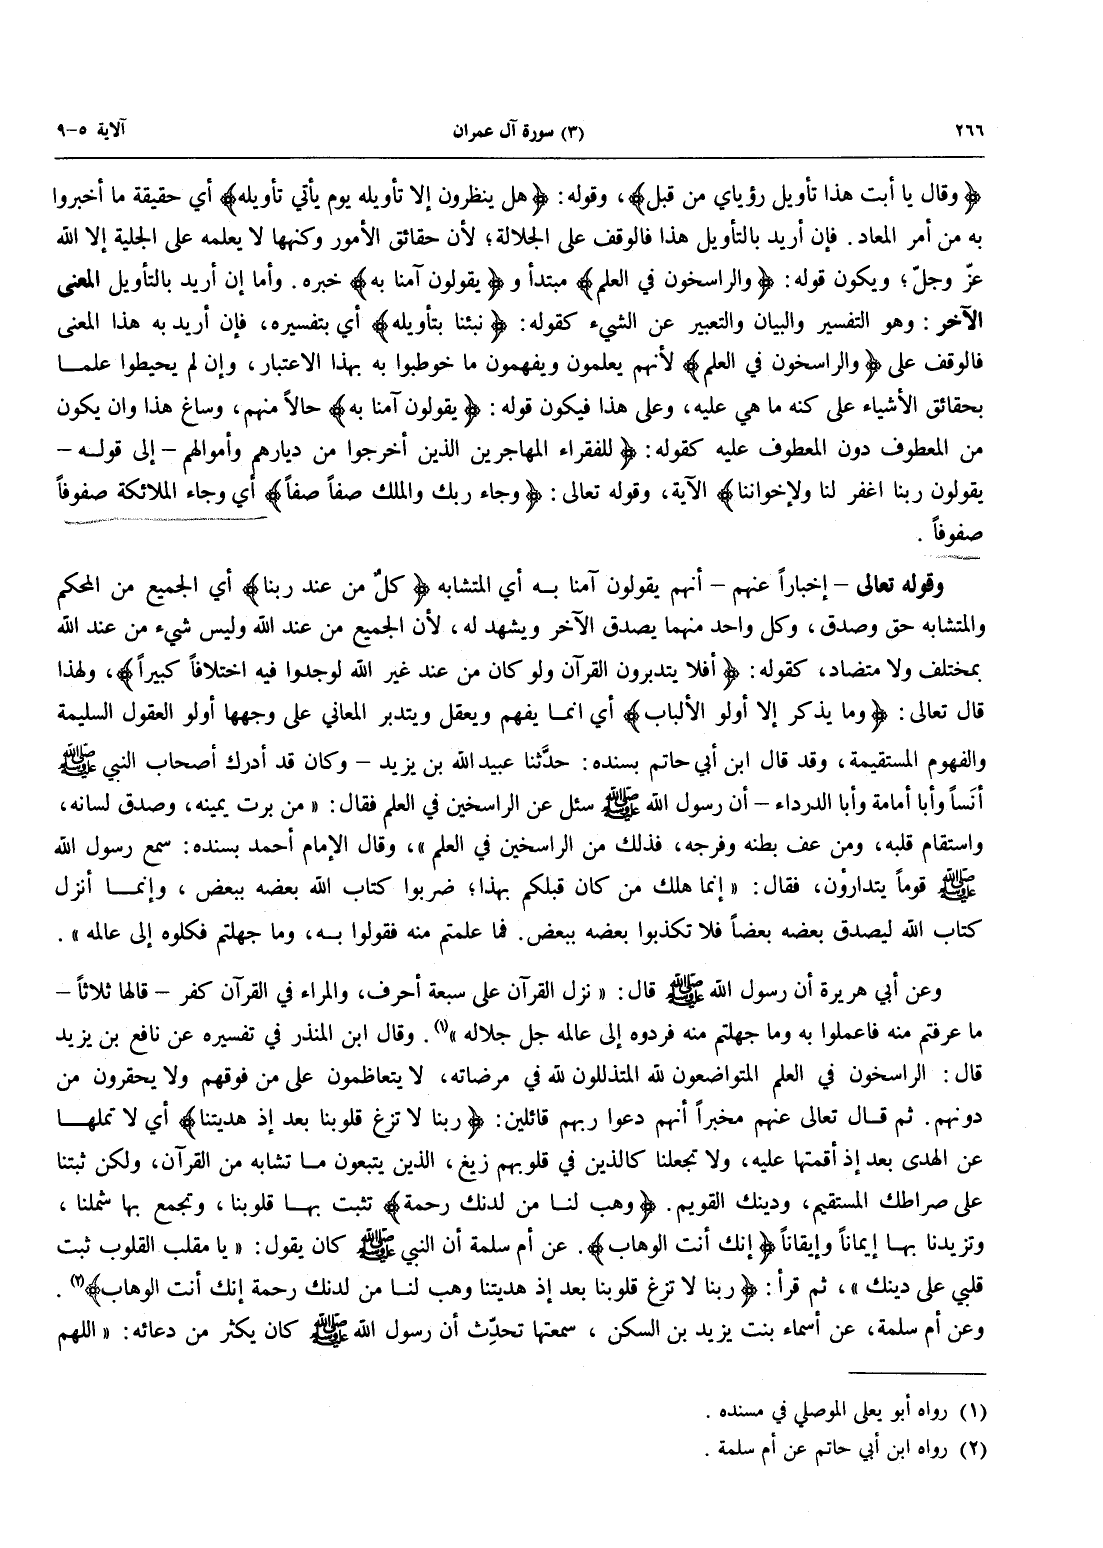 ٢٦٦ (٣) سورة آل عمران آلاية ٥–٩
﴿ وقال يا أبت هذا تأويل رؤياي من قبل﴾، وقوله: ﴿هل ينظرون إلا تأويله يوم يأتي تأويله﴾ أي حقيقة ما أخبروا
به من أمر المعاد. فإن أريد بالتأويل هذا فالوقف على الجلالة؛ لأن حقائق الأمور وكنهها لا يعلمه على الجلية إلا الله
عزّ وجلّ؛ ويكون قوله: ﴿ والراسخون في العلم﴾ مبتدأ و ﴿ يقولون آمنا به﴾ خبره. وأما إن أريد بالتأويل المعنى
الآخر : وهو التفسير والبيان والتعبير عن الشيء كقوله: ﴿ نبئنا بتأويله﴾ أي بتفسيره، فإن أريد به هذا المعنى
فالوقف على ﴿ والراسخون في العلم﴾ لأنهم يعلمون ويفهمون ما خوطبوا به بهذا الاعتبار، وإن لم يحيطوا علمــا
بحقائق الأشياء على كنه ما هي عليه، وعلى هذا فيكون قوله: ﴿ يقولون آمنا به﴾ حالاً منهم، وساغ هذا وان يكون
من المعطوف دون المعطوف عليه كقوله: ﴿ للفقراء المهاجرين الذين أخرجوا من ديارهم وأموالهم – إلى قولـه –
يقولون ربنا اغفر لنا ولإخواننا﴾ الآية، وقوله تعالى: ﴿ وجاء ربك والملك صفاً صفاً﴾ أي وجاء الملائكة صفوفاً
صفوفاً .
وقوله تعالى – إخباراً عنهم – أنهم يقولون آمنا بـه أي المتشابه ﴿ كلٌ من عند ربنا﴾ أي الجميع من المحكم
والمتشابه حق وصدق، وكل واحد منهما يصدق الآخر ويشهد له، لأن الجميع من عند الله وليس شيء من عند الله
بمختلف ولا متضاد، كقوله: ﴿ أفلا يتدبرون القرآن ولو كان من عند غير الله لوجدوا فيه اختلافاً كبيراً﴾، ولهذا
قال تعالى: ﴿ وما يذكر إلا أولو الألباب﴾ أي انمـا يفهم ويعقل ويتدبر المعاني على وجهها أولو العقول السليمة
والفهوم المستقيمة، وقد قال ابن أبي حاتم بسنده: حدَّثنا عبيد الله بن يزيد – وكان قد أدرك أصحاب النبي ﷺ
أنَساً وأبا أمامة وأبا الدرداء – أن رسول الله ﷺ سئل عن الراسخين في العلم فقال: « من برت يمينه، وصدق لسانه،
واستقام قلبه، ومن عف بطنه وفرجه، فذلك من الراسخين في العلم »، وقال الإمام أحمد بسنده: سمع رسول الله
ﷺ قوماً يتدارؤن، فقال: « إنما هلك من كان قبلكم بهذا؛ ضربوا كتاب الله بعضه ببعض ، وإنمــا أنزل
كتاب الله ليصدق بعضه بعضاً فلا تكذبوا بعضه ببعض. فما علمتم منه فقولوا بـه، وما جهلتم فكلوه إلى عالمه » .
وعن أبي هريرة أن رسول الله ﷺ قال: « نزل القرآن على سبعة أحرف، والمراء في القرآن كفر – قالها ثلاثاً –
ما عرفتم منه فاعملوا به وما جهلتم منه فردوه إلى عالمه جل جلاله »(١). وقال ابن المنذر في تفسيره عن نافع بن يزيد
قال: الراسخون في العلم المتواضعون لله المتذللون لله في مرضاته، لا يتعاظمون على من فوقهم ولا يحقرون من
دونهم. ثم قـال تعالى عنهم مخبراً أنهم دعوا ربهم قائلين: ﴿ ربنا لا تزغ قلوبنا بعد إذ هديتنا﴾ أي لا تملهــا
عن الهدى بعد إذ أقمتها عليه، ولا تجعلنا كالذين في قلوبهم زيغ، الذين يتبعون مـا تشابه من القرآن، ولكن ثبتنا
على صراطك المستقيم، ودينك القويم. ﴿ وهب لنـا من لدنك رحمة﴾ تثبت بهـا قلوبنا ، وتجمع بها شملنا ،
وتزيدنا بهـا إيماناً وإيقاناً ﴿ إنك أنت الوهاب﴾. عن أم سلمة أن النبي ﷺ كان يقول: « يا مقلب القلوب ثبت
قلبي على دينك »، ثم قرأ: ﴿ ربنا لا تزغ قلوبنا بعد إذ هديتنا وهب لنـا من لدنك رحمة إنك أنت الوهاب﴾(٢) .
وعن أم سلمة، عن أسماء بنت يزيد بن السكن ، سمعتها تحدِّث أن رسول الله ﷺ كان يكثر من دعائه: « اللهم
(١) رواه أبو يعلى الموصلي في مسنده .
(٢) رواه ابن أبي حاتم عن أم سلمة .